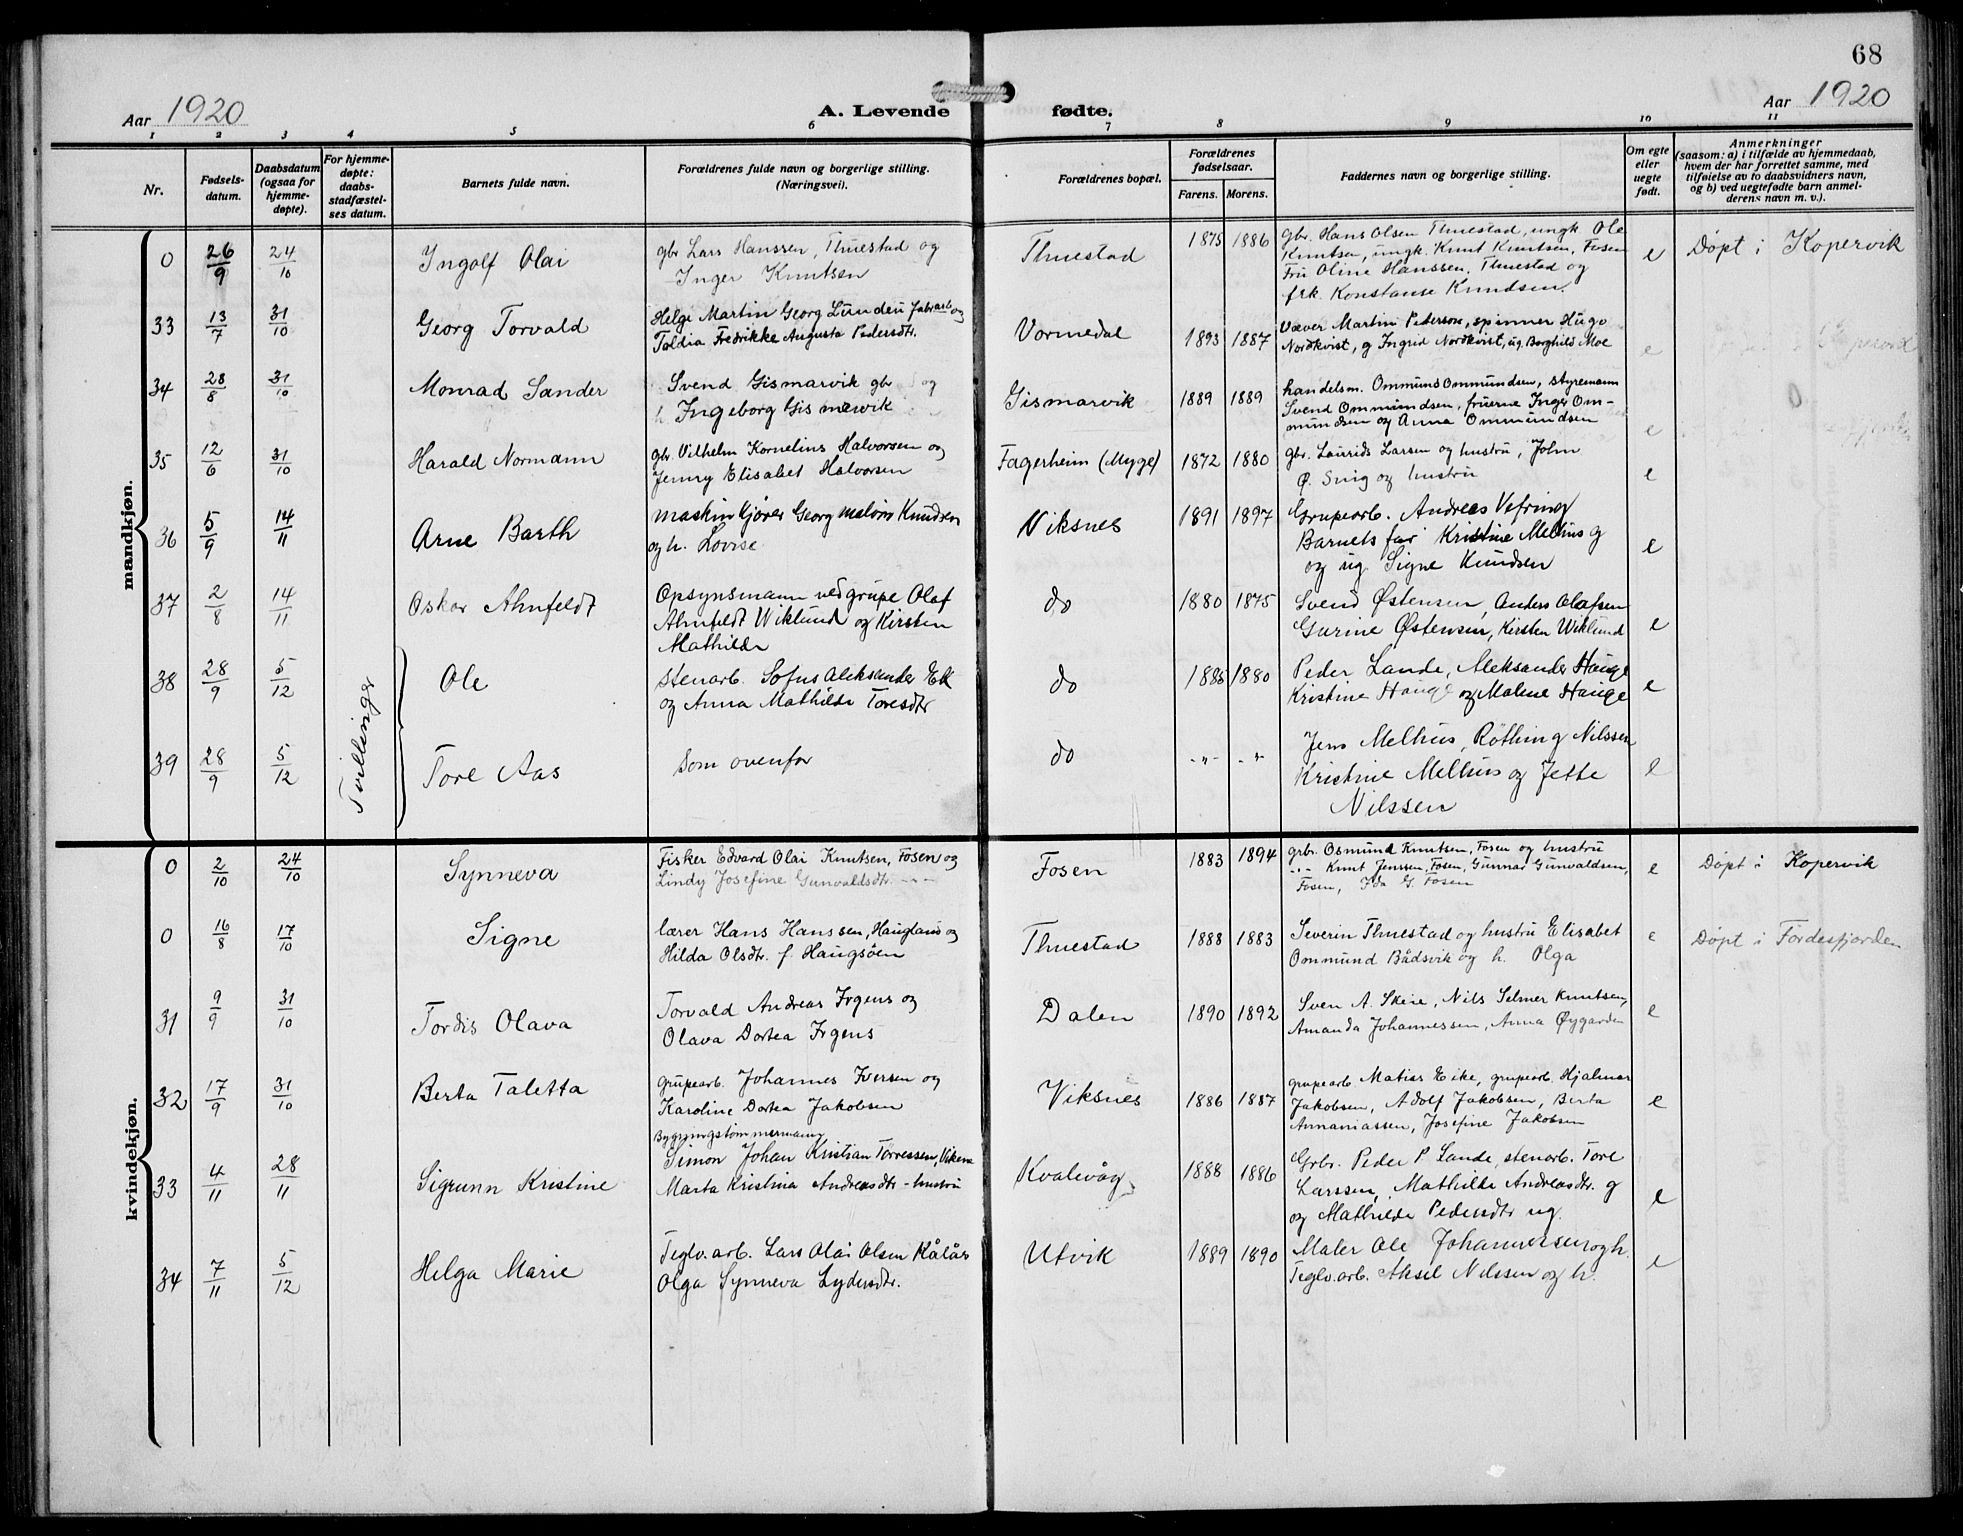 68
Aar 1920 A. Levende fødte. Aar 1920
1 2 3 4 5 6 7 8 9 10 11
Nr.
Fødsels-
datum.
Daabsdatum
(ogsaa for
hjemme-
døpte).
For hjemme-
døpte:
daabs-
stadfæstel-
ses datum.
Barnets fulde navn.
Forældrenes fulde navn og borgerlige stilling.
(Næringsvei).
Forældrenes bopæl.
Forældrenes
fødselsaar.
Farens. Morens.
Faddernes navn og borgerlige stilling.
Om egte
eller
uegte
født.
Anmerkninger
(saasom: a) i tilfælde av hjemmedaab,
hvem der har forrettet samme, med
tilføielse av to daabsvidners navn,
og b) ved uegtefødte barn anmel-
derens navn m. v.).
mandkjøn.
0 26/9 24/10 Ingolf Olai
gbr Lars Hanssen, Thuestad og
Inger Knutsen
Thuestad 1875 1886
gbr. Hans Olsen Thuestad, ungk Ole
Knutsen, ungk. Knut Knutsen, Fosen
Fru Oline Hanssen, Thuestad og
frk. Konstanse Knudsen.
e Døpt i Kopervik
33 13/7 31/10 Georg Torvald
Helge Martin Georg Lunden fabr.arb og
Toldia Fredrikke Augusta Pedersdtr.
Vormedal 1893 1887
Væver Martin Pederson, spinner Hugo
Nordkvist, g Ingrid Nordkvist, ug. Borghild Moe
e
34 28/8 31/10 Monrad Sander
Svend Gismarvik gbr og
h. Ingeborg Gismarvik
Gismarvik 1889 1889
handelsm. Ommund Ommundsen, styremann
Svend Ommundsen, fruerne Inger Om-
mundsen og Anna Ommundsen
e
35 12/6 31/10 Harald Normann
gbr. Vilhelm Kornelius Halvorsen og
Jenny Elisabet Halvorsen
Fagerheim (Myge) 1872 1880
gbr. Laurids Larsen og hustru, John
Ø. Snig og hustru
e
36 5/9 14/11 Arne Barth
maskinkjører Georg Malvin Knudsen
og h. Lovise
Viksnes 1891 1897
Grupearb. Andreas Vefring
Barnets far Kristine Melhus g
og ug. Signe Knudsen
e
37 2/8 14/11 Oskar Ahnfeldt
Opsynsmann ved grupe Olaf
Ahnfeldt Wiklund og Kirsten
Mathilde
do 1880 1875
Svend Østensen, Anders Olafsen
Gurine Østensen, Kirsten Wiklund
e
Tvillinger
38 28/9 5/12 Ole
Stenarb. Sofus Aleksander Ek
og Anna Mathilde Toresdtr
do 1885 1880
Peder Lande, Aleksander Hauge
Kristine Hauge og Malene Hauge
e
39 28/9 5/12 Tore Aas
Som ovenfor
do -"- -"-
Jens Melhus, Røthing Nilssen
Kristine Melhus og Jette
Nilssen
e
kvindekjøn.
0 2/10 24/10 Synneva
Fisker Edvard Olai Knutsen, Fosen og
Lindy Josefine Gunvaldsdtr. -"-
Fosen 1883 1894
grbr. Osmund Knutsen, Fosen og hustru
-"- Knut Jenssen, Fosen, Gunnar Gunvaldsen,
Fosen, Ida G. Fosen
e Døpt i Kopervik
0 16/8 17/10 Signe
lærer Hans Hanssen, Haugland og
Hilda Olsdtr. f. Haugsöen
Thuestad 1888 1883
Severin Thuestad og hustru Elisabet
Ommund Bådsvik og h. Olga
e Døpt i Førdesfjorden
31 9/9 31/10 Tordis Olava
Torvald Andreas Irgens og
Olava Dortea Irgens
Dalen 1890 1892
Sven A. Skeie, Nils Selmer Knutsen,
Amanda Johannessen, Anna Øygarden
e
32 17/9 31/10 Berta Taletta
grupearb. Johannes Iversen og
Karoline Dortea Jakobsen
Viksnes 1886 1887
grupearb Matias Eike, grupearb. Hjalmar
Jakobsen, Adolf Jakobsen, Berta
Annaniassen, Josefine Jakobsen
e
33 4/11 28/11 Sigrunn Kristine
Bygningstømmermann
Simon Johan Kristian Torressen, Vikene
Marta Kristina Andreasdtr - hustru
Kvalevåg 1888 1886
Grbr. Peder P Lande, stenarb. Tore
Larssen, Mathilde Andreasdtr. g
og Mathilde Pedersdtr ug.
e
34 7/11 5/12 Helga Marie
Teglv.arb. Lars Olai Olsen Kålås
Olga Synneva Lydersdtr.
Utvik 1889 1890
Maler Ole Johannessen og h.
Teglv.arb. Aksel Nilssen og h.
e